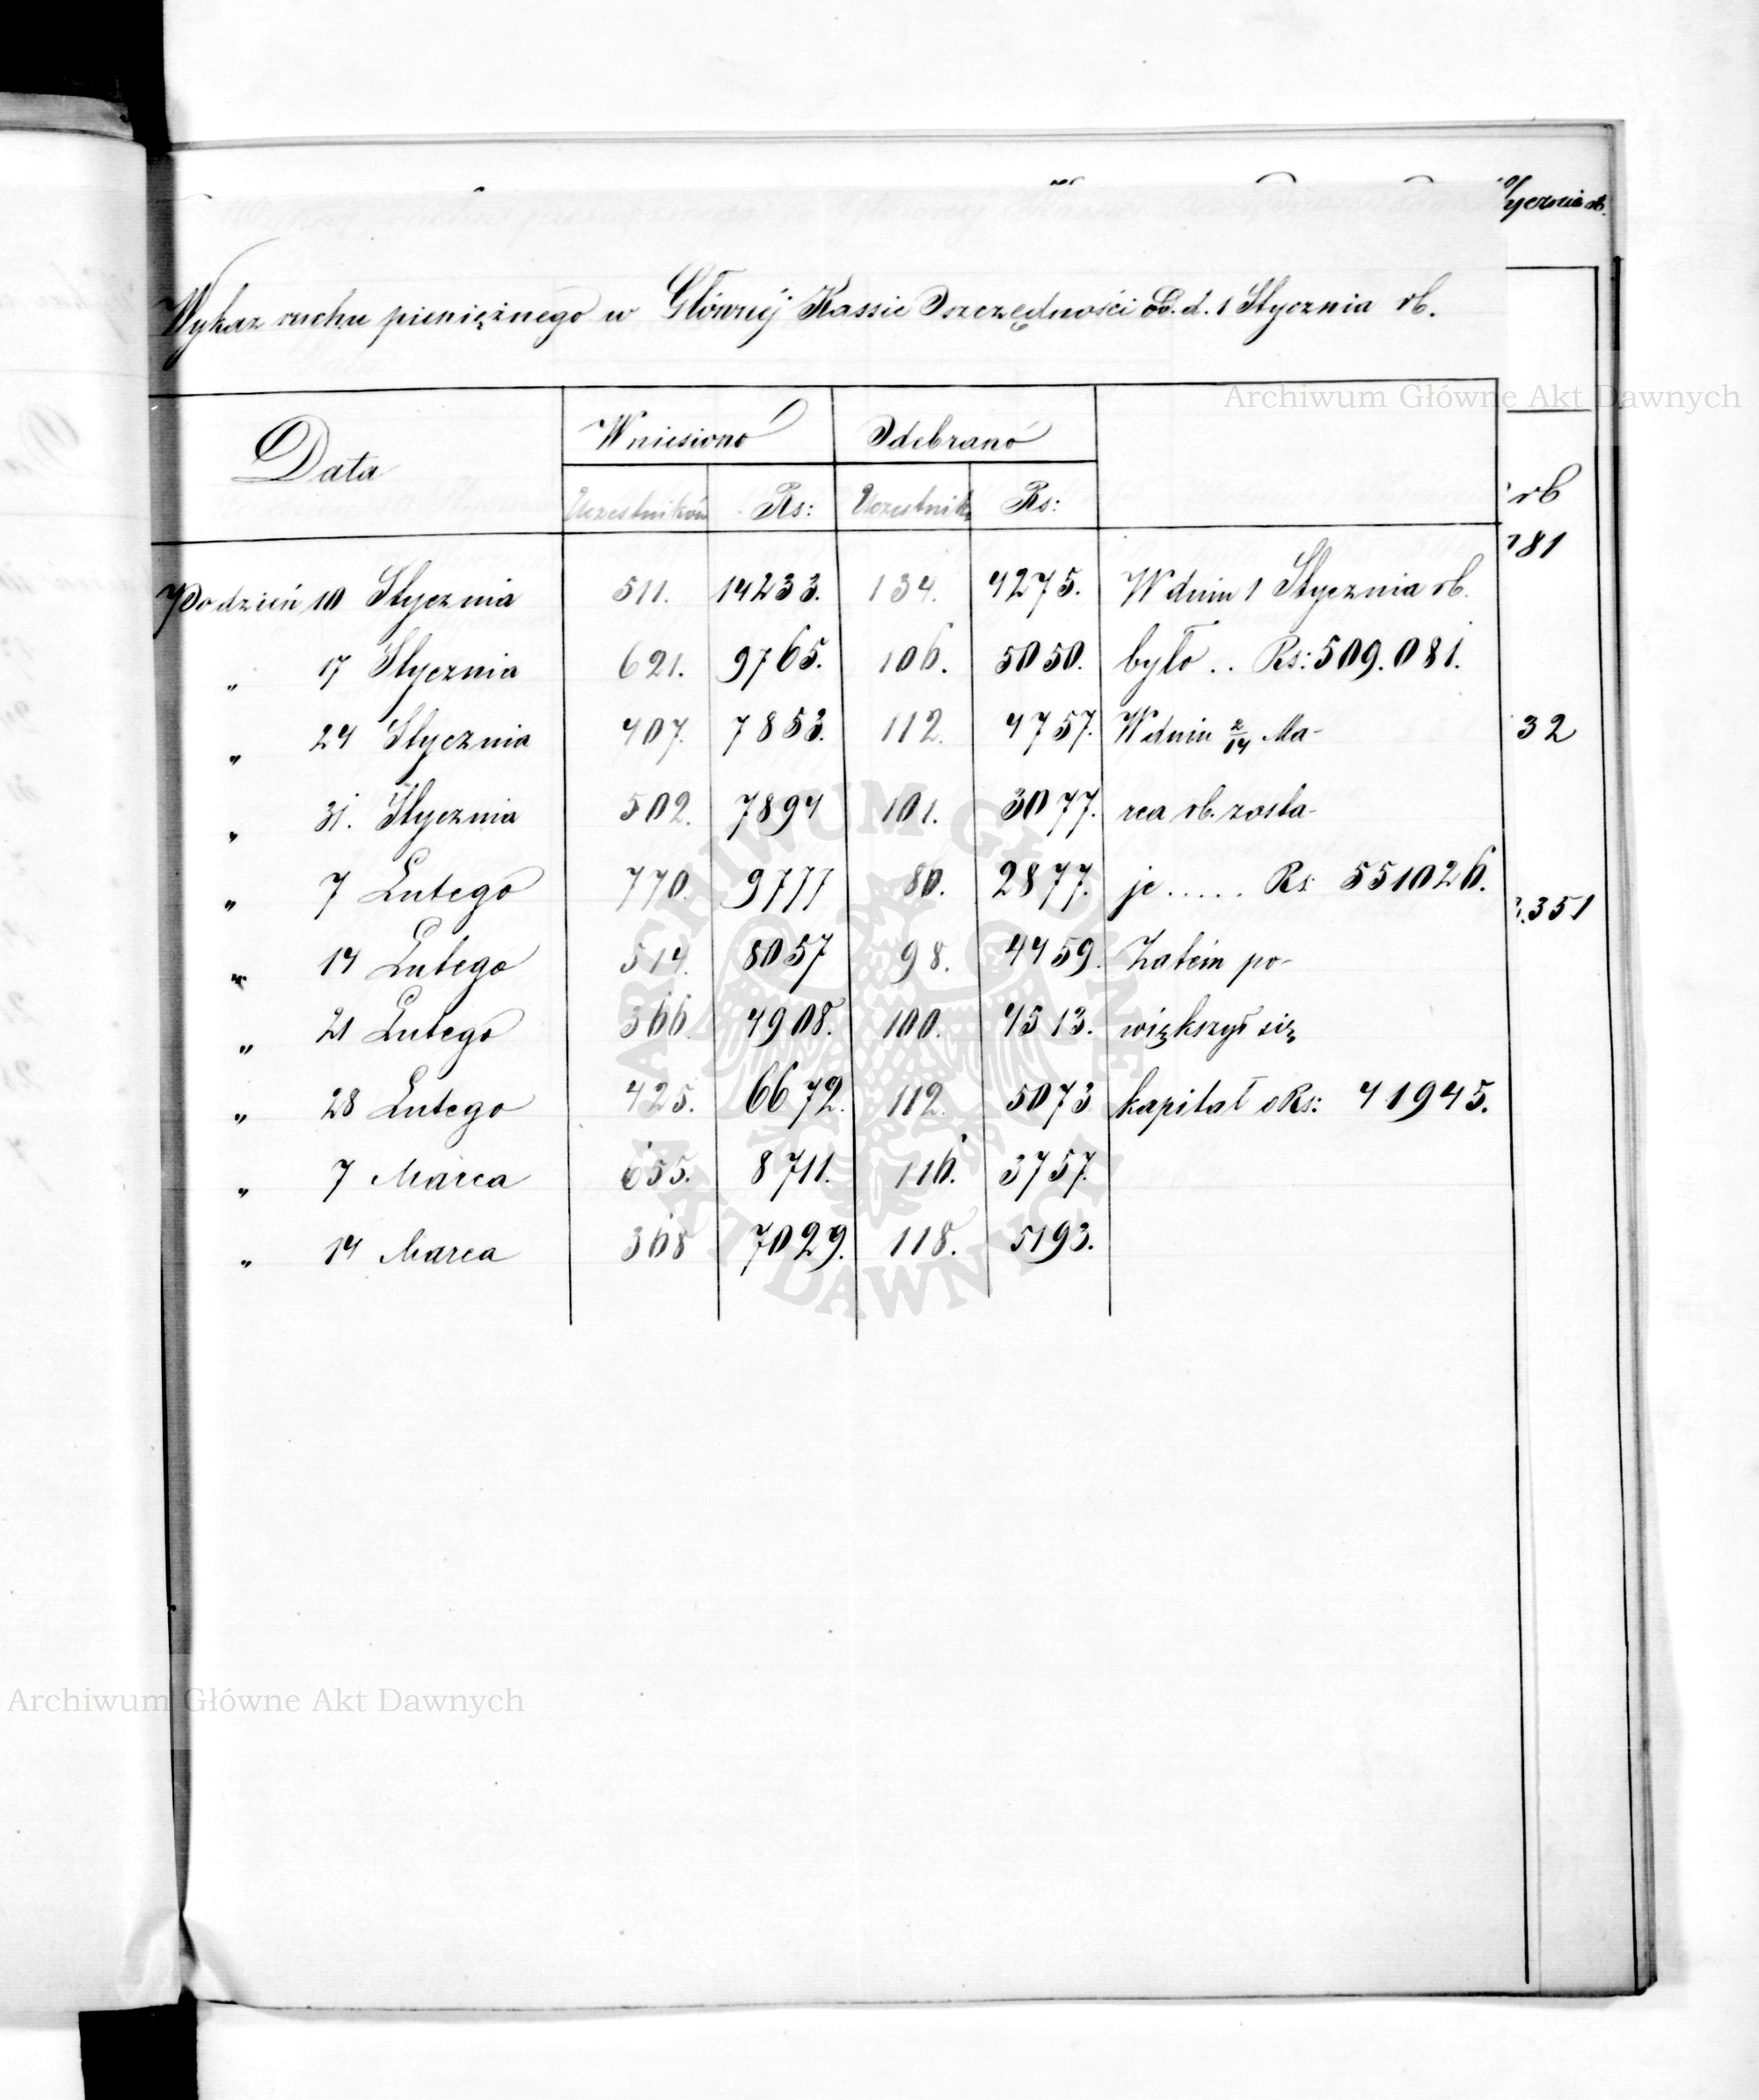 ycznia rb.
Wykaz ruchu pieniężnego w Głównéj Kassie Oszczędności od d. 1 Stycznia rb.
Archiwum Główne Akt Dawnych
Data Wniesiono Odebrano
Uczestników Rs: Uczestnik. Rs:
rb
81
Po dzień 10 Stycznia 511. 14233. 134. 4275. W dniu 1 Stycznia rb.
„ 17 Stycznia 621. 9765. 106. 5050. było .. Rs: 509.081.
„ 24 Stycznia 407. 7853. 112. 4757. W dniu 2/14 Ma-
32
„ 31. Stycznia 502. 7894 101. 3077. rca rb. zosta-
„ 7 Lutego 770. 9777 80. 2877. je ..... Rs 551026.
.351
„ 14 Lutego 514. 8057 98. 4459. Zatém po-
„ 21 Lutego 366. 4908. 100. 4513. większył się
„ 28 Lutego 425. 6672. 112. 5073 kapitał o Rs: 41945.
„ 7 Marca 655. 8711. 116. 3757.
„ 14 Marca 368 7029. 118. 5193.
ARCHIWUM GŁÓWNE
AKT DAWNYCH
Archiwum Główne Akt Dawnych